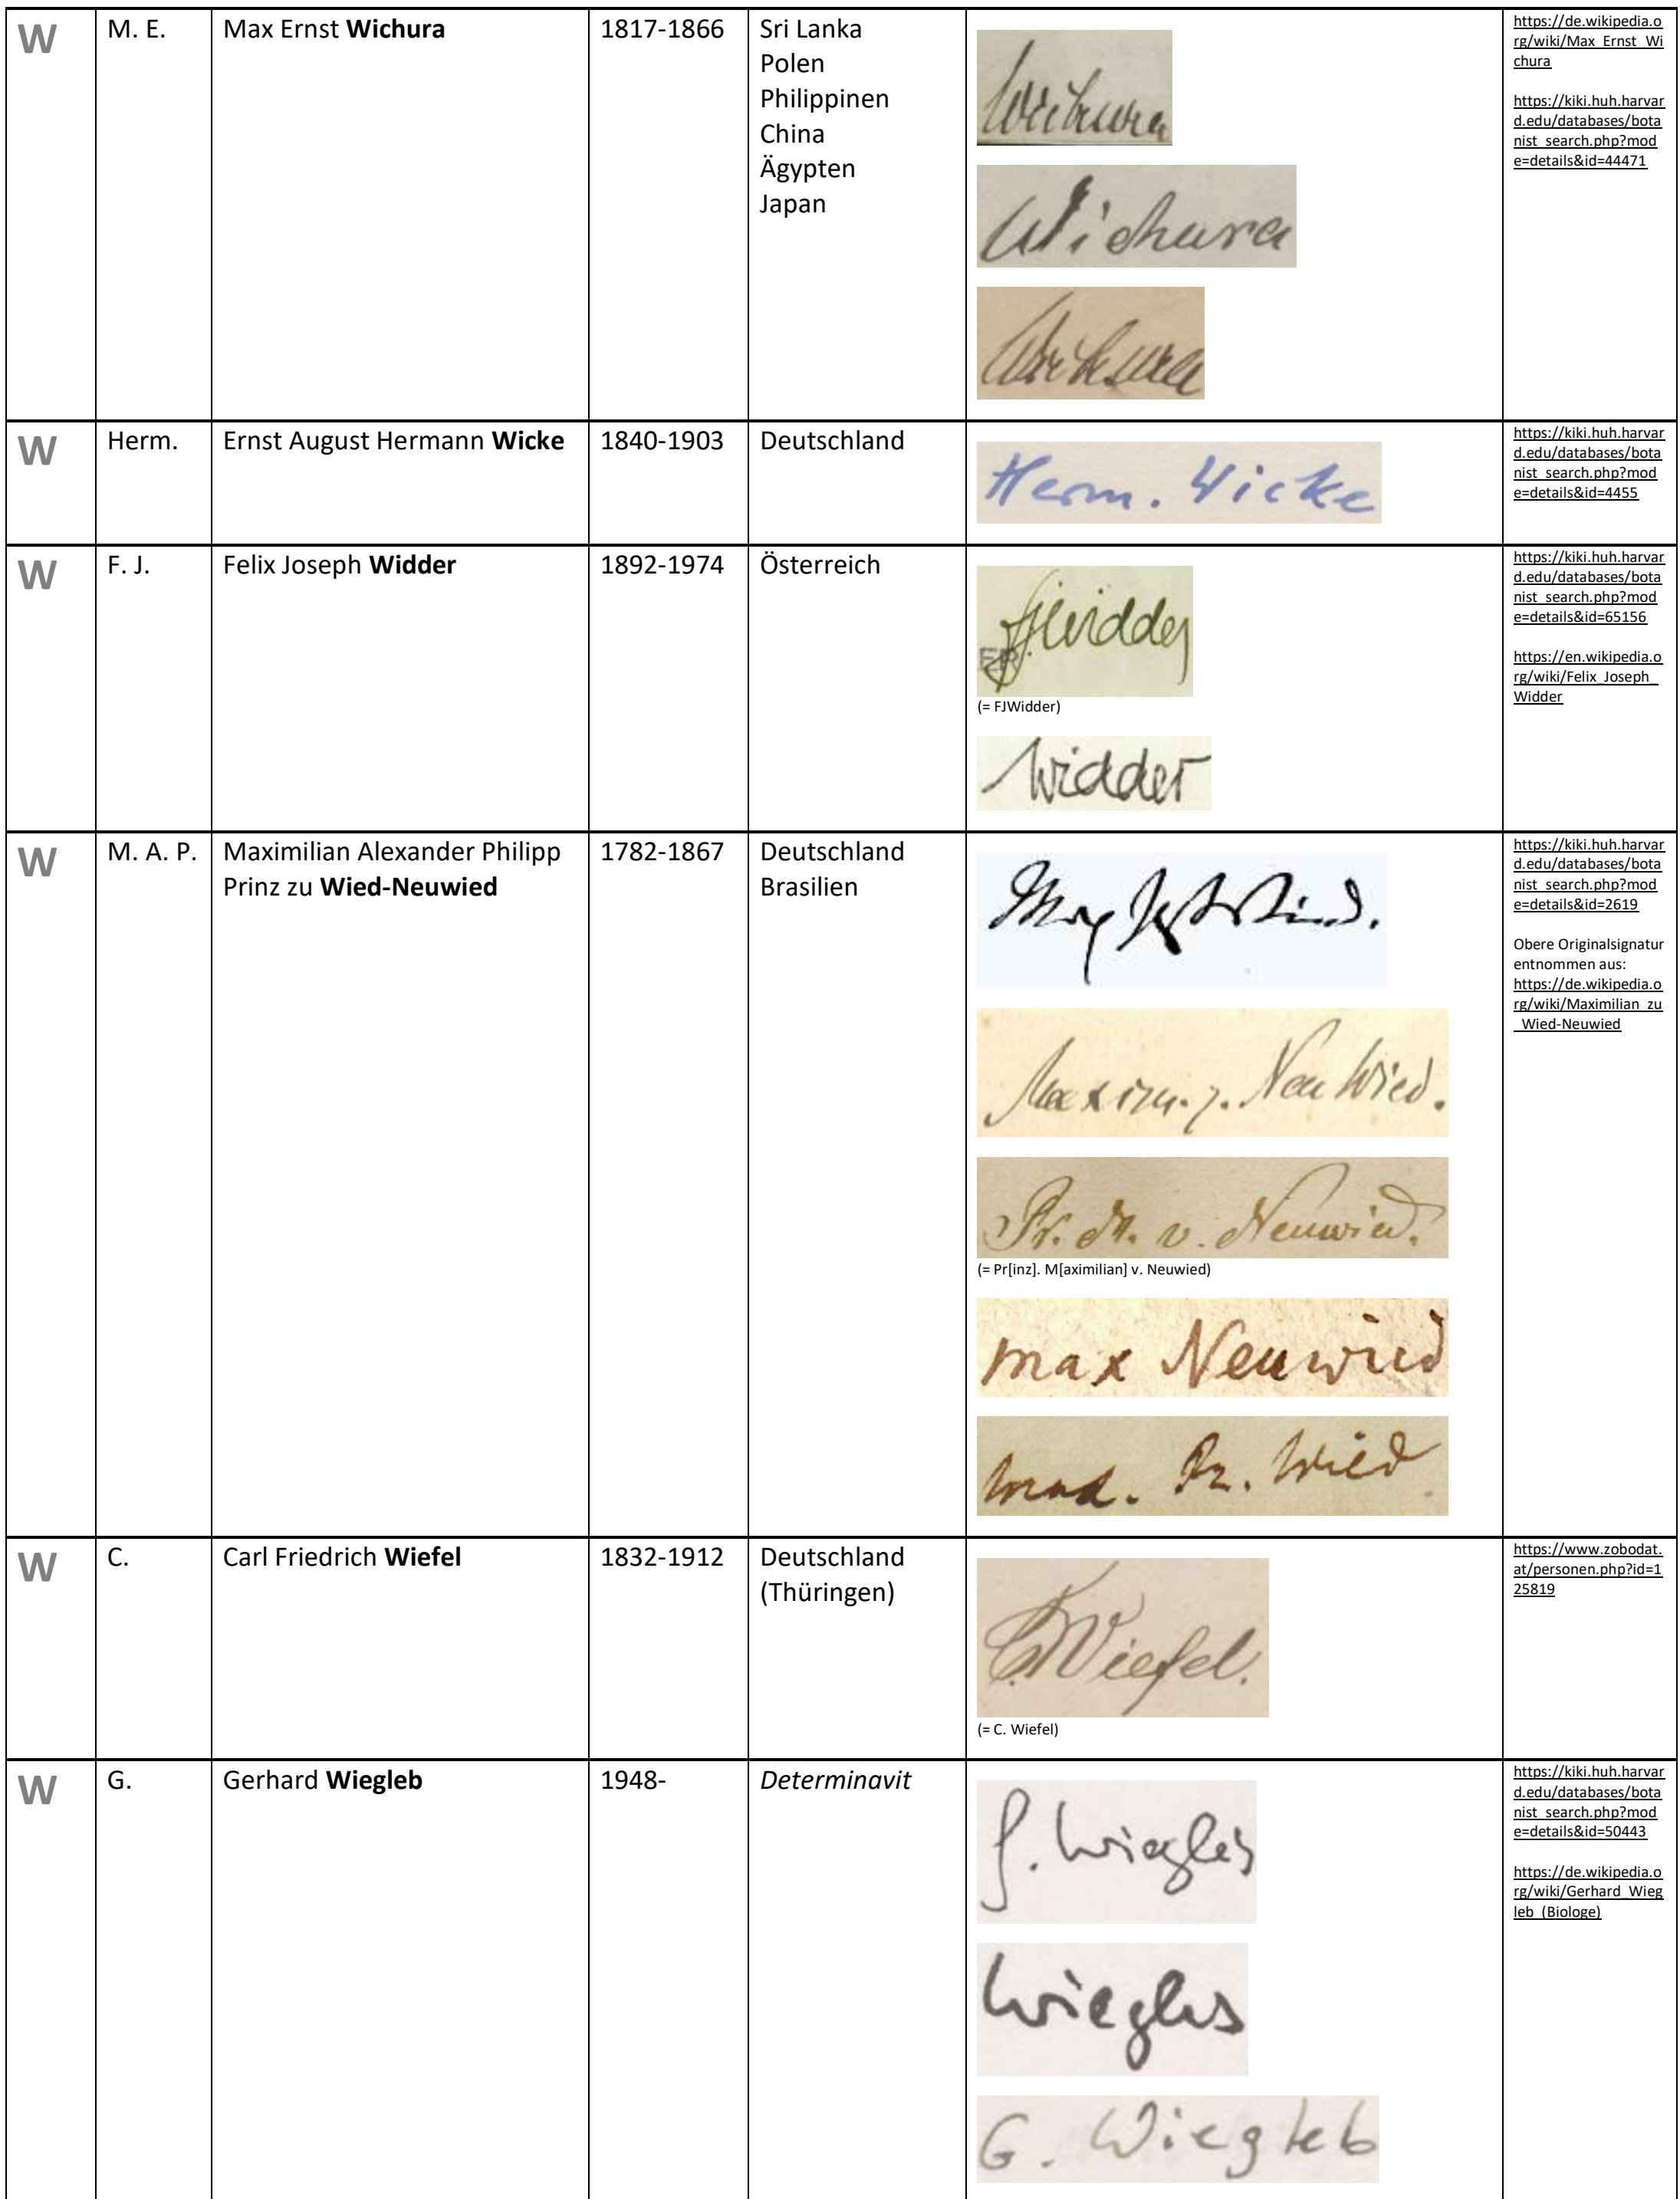 W
M. E.
Max Ernst Wichura
1817-1866
Sri Lanka
Polen
Philippinen
China
Ägypten
Japan
Wichura
Wichura
Wichura
https://de.wikipedia.o
rg/wiki/Max_Ernst_Wi
chura
https://kiki.huh.harvar
d.edu/databases/bota
nist_search.php?mod
e=details&id=44471
W
Herm.
Ernst August Hermann Wicke
1840-1903
Deutschland
Herm. Wicke
https://kiki.huh.harvar
d.edu/databases/bota
nist_search.php?mod
e=details&id=4455
W
F. J.
Felix Joseph Widder
1892-1974
Österreich
FJWidder
ER
(= FJWidder)
Widder
https://kiki.huh.harvar
d.edu/databases/bota
nist_search.php?mod
e=details&id=65156
https://en.wikipedia.o
rg/wiki/Felix_Joseph_
Widder
W
M. A. P.
Maximilian Alexander Philipp
Prinz zu Wied-Neuwied
1782-1867
Deutschland
Brasilien
Max Wied.
Maxim. z. Neu Wied.
Pr. M. v. Neuwied.
(= Pr[inz]. M[aximilian] v. Neuwied)
max Neuwied
Max. Pr. Wied
https://kiki.huh.harvar
d.edu/databases/bota
nist_search.php?mod
e=details&id=2619
Obere Originalsignatur
entnommen aus:
https://de.wikipedia.o
rg/wiki/Maximilian_zu
_Wied-Neuwied
W
C.
Carl Friedrich Wiefel
1832-1912
Deutschland
(Thüringen)
C. Wiefel.
(= C. Wiefel)
https://www.zobodat.
at/personen.php?id=1
25819
W
G.
Gerhard Wiegleb
1948-
Determinavit
G. Wiegleb
Wiegleb
G. Wiegleb
https://kiki.huh.harvar
d.edu/databases/bota
nist_search.php?mod
e=details&id=50443
https://de.wikipedia.o
rg/wiki/Gerhard_Wieg
leb_(Biologe)